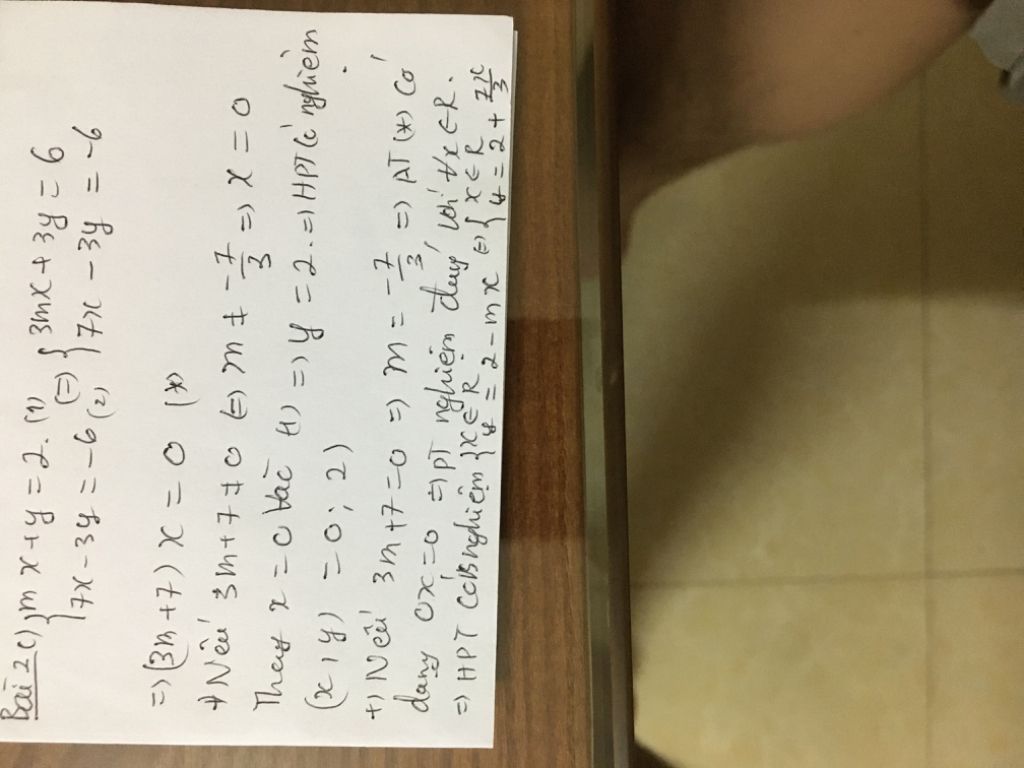 Bài 2c) { mx + y = 2. (1) (=) { 3mx + 3y = 6
7x - 3y = -6 (2) 7x - 3y = -6
=> (3m + 7) x = 0 (*)
+) Nếu 3m + 7 ≠ 0 (=) m ≠ -7/3 => x = 0
Thay x = 0 vào (1) => y = 2. => HPT có nghiệm
(x ; y) = 0 ; 2)
+) Nếu 3m + 7 = 0 => m = -7/3 => PT (*) có
dạng 0x = 0 => PT nghiệm đúng với ∀x ∈ R.
=> HPT có nghiệm { x ∈ R (=) { x ∈ R
y = 2 - mx y = 2 + 7x/3